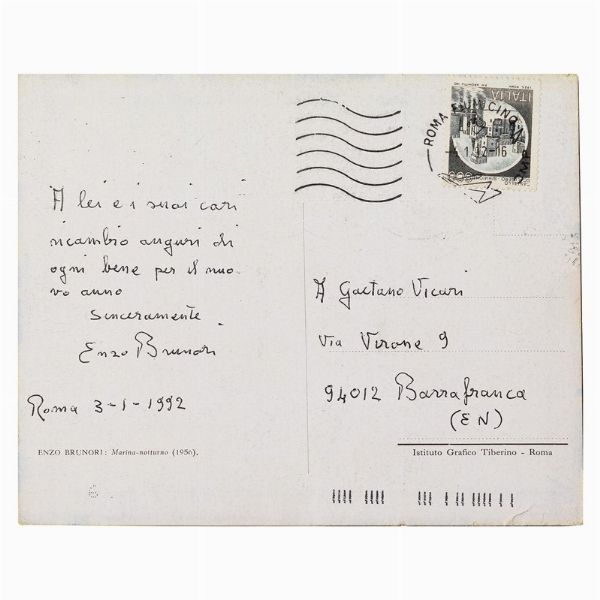 A lei e i suoi cari
ricambio auguri di
ogni bene per il nuo-
vo anno
sinceramente
Enzo Brunori
Roma 3-1-1992
ENZO BRUNORI: Marina-notturno (1956).
ITALIA
ROMA FIUMICINO
A Gaetano Vicari
Via Virone 9
94012 Barrafranca
(EN)
Istituto Grafico Tiberino - Roma